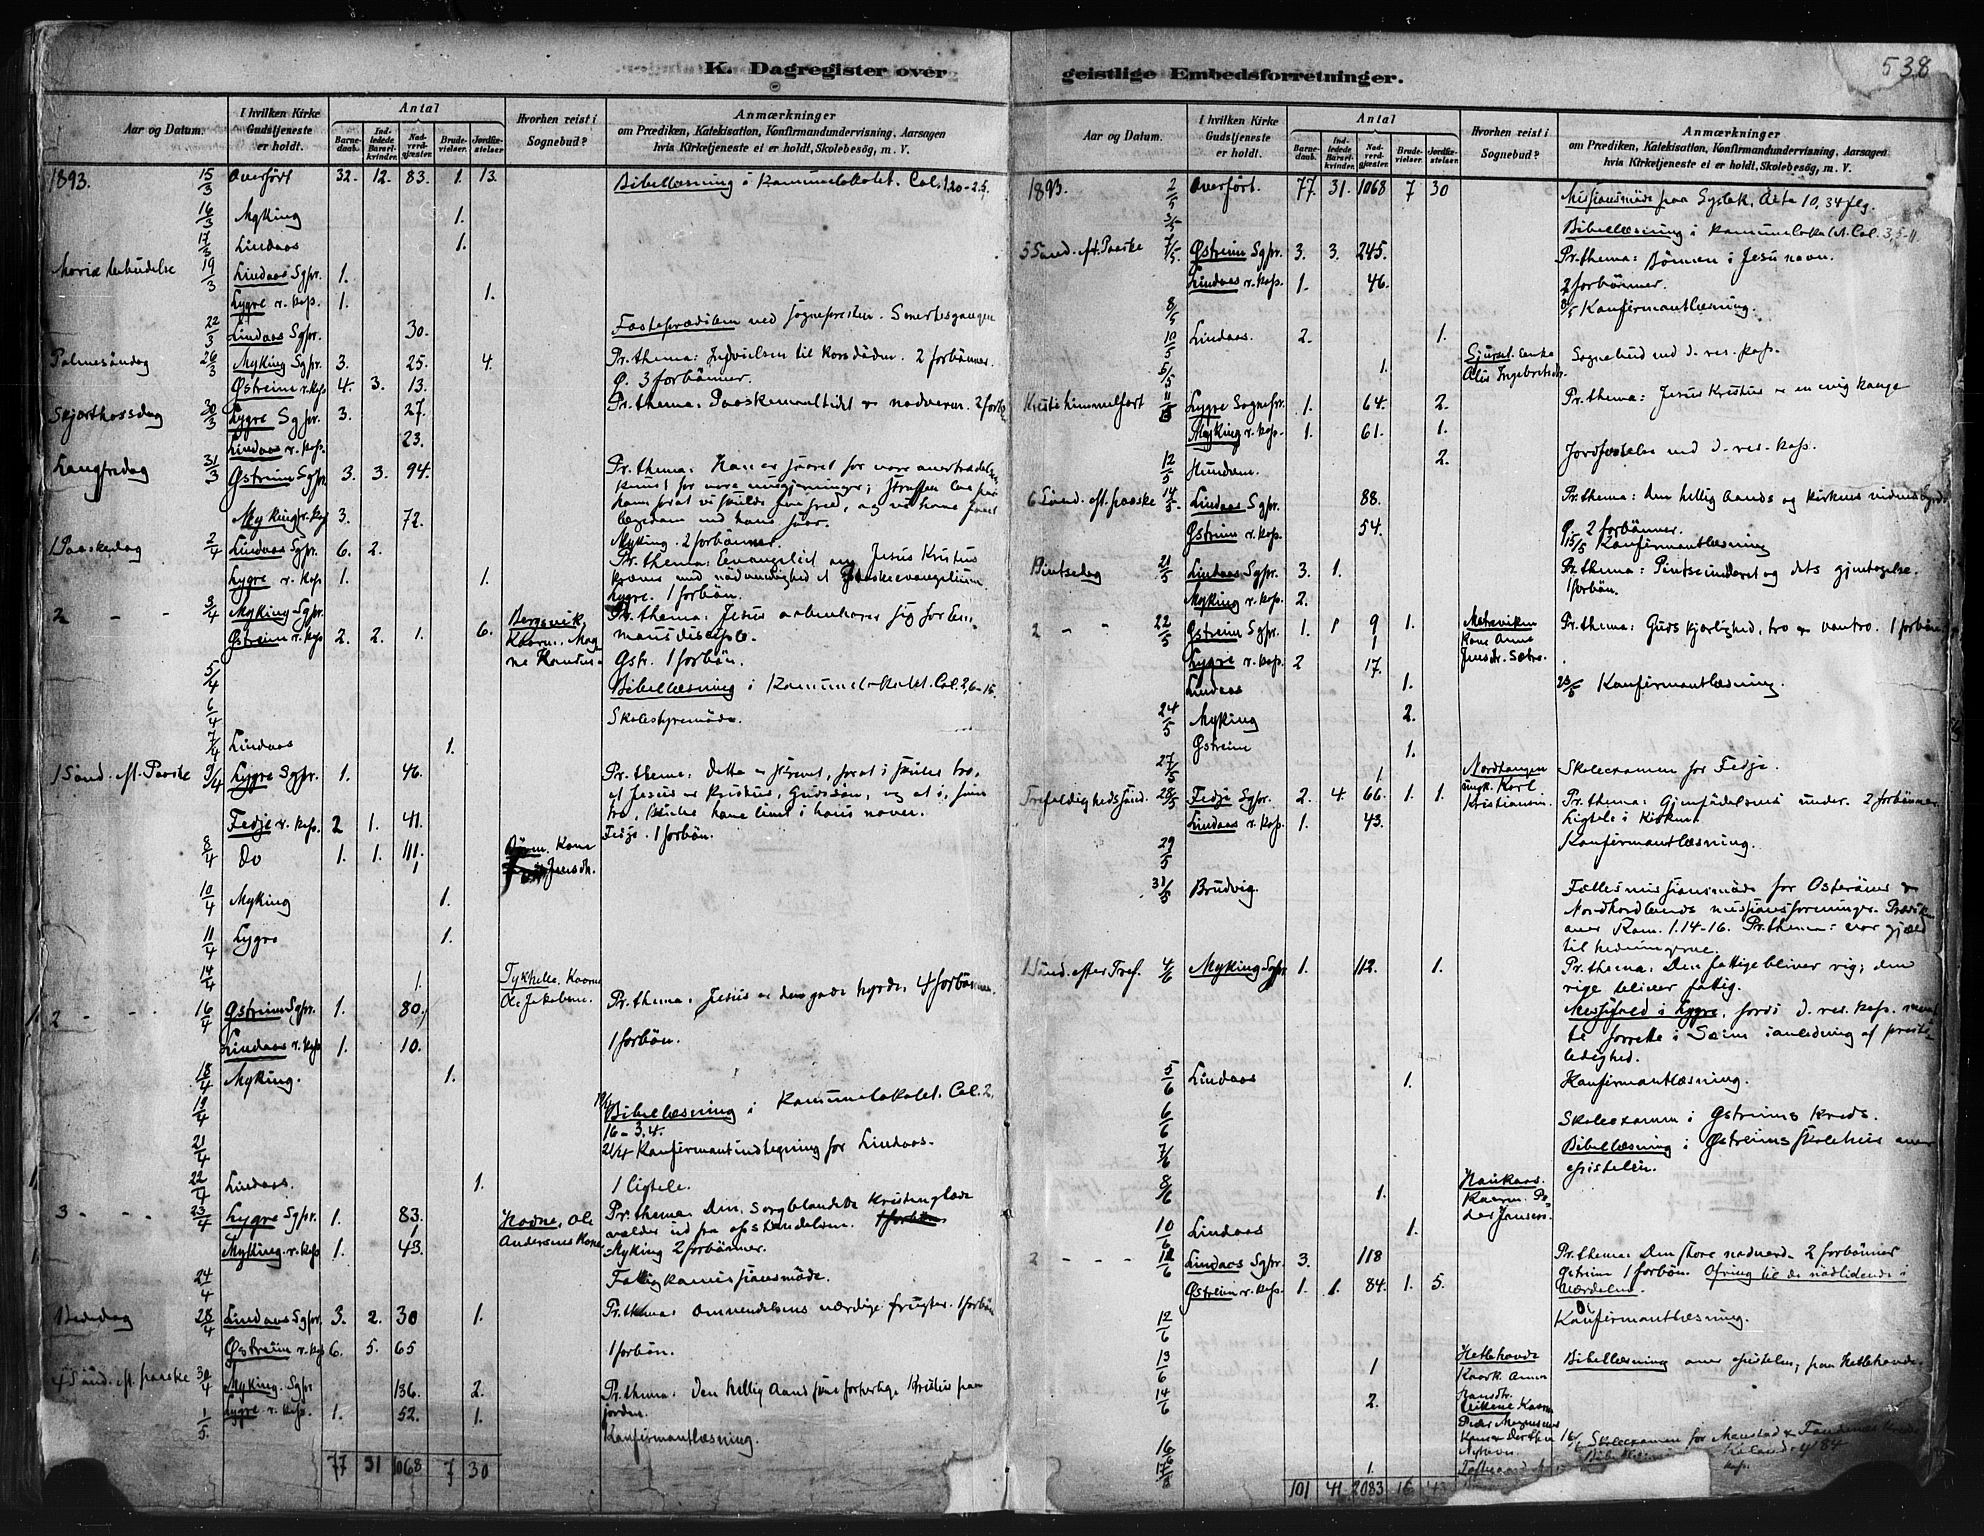 K. Dagregister over geistlige Embedsforretninger.
538
Aar og Datum.
I hvilken Kirke Gudstjeneste er holdt.
Antal
Barnedaab.
Indledede Barselkvinder.
Nadverdgjæster.
Brudevielser.
Jordfæstelser
Hvorhen reist i Sognebud?
Anmærkninger
om Prædiken, Katekisation, Konfirmandundervisning, Aarsagen
hvis Kirketjeneste ei er holdt, Skolebesøg, m. V.
1893. 15/3 Overført 32. 12. 83. 1. 13. Bibellæsning i Kommunelokalet. Col. 1,20-2,5.
16/3 Myking 1.
17/3 Lindaas 1.
Mariæ bebudelse 19/3 Lindaas Sgpr. 1.
Lygre r. kap. 1. 1.
22/3 Lindaas Sgpr. 30. Fasteprædiken ved sognepresten. Smertesgangen
Palmesöndag 26/3 Myking Sgpr. 3. 25. 4. Pr. thema: Indvielsen til korsdöden. 2 forbönner.
Østreim r. kap. 4. 3. 13. Ø. 3 forbönner.
Skjærthorsdag 30/3 Lygre Sgpr. 3. 27. Pr. thema: Paaskemaaltidet og nadveren. 2 forb.
Lindaas r. kap. 23.
Langfredag 31/3 Østreim Sgpr. 3. 3. 94. Pr. thema: Han er saaret for vore overtrædelser
knust for vore misgjerninger; straffen laa paa
ham forat vi skulde have fred, og vi have faaet
lægedom ved hans saar.
Myking r. kap 3. 72. Myking. 2 forbönner.
1 Paaskedag 2/4 Lindaas Sgpr. 6. 2. Pr. thema: Evangeliet om Jesus Kristus
kræver med nödvendighed et Paaskeevangelium
Lygre r. kap 1. 1. Lygre. 1 forbön.
2 - - 3/4 Myking Sgpr. Bergsvik, Pr. thema: Jesus aabenbarer sig for Em-
Østreim r. kap 2. 2. 1. 6. mausdisciple.
Østr. 1 forbön.
5/4 Bibellæsning i Kommunelokalet. Col. 2,6-15.
6/4 Skolestyremöde.
7/4 Lindaas 1.
1 Sönd. eft. Paaske 9/4 Lygre Sgpr. 1. 46. Pr. thema: Dette er skrevet, forat i skulde tro,
at Jesus er Kristus, Guds sön, og at i, som
tro, skulde have livet i hans navn.
Fedje r. kap. 2 1. 41. Fedje. 1 forbön.
8/4 Do 1. 1. 111. Kone
1 Jensdtr.
10/4 Myking 1.
11/4 Lygre 1.
14/4 1. Ole Jakobsen.
2 - - 16/4 Østreim Sgpr. 1. 80. Pr. thema: Jesus er den gode hyrde. 4 forbönner.
Lindaas r. kap 1. 10. 1 forbön.
18/4 Myking. 1.
19/4 19/4 Bibellæsning i Kommunelokalet. Col. 2,
16-3,4.
21/4 21/4 Konfirmantindtegning for Lindaas.
22/4 Lindaas. 1. 1 ligtale.
3 - - 23/4 Lygre Sgpr. 1. 83. Pr. thema: Den sorgblandede Kristenglæde
1 Andersens Kone
Myking r. kap 1. 43. Myking 2 forbönner.
24/4 Fattigkommissionsmöde.
Bededag 28/4 Lindaas Sgpr. 3. 2. 30 1. Pr. thema: Omvendelsens værdige frugter. 1 forbön
Østreim r. kap 6. 5. 65 1 forbön.
4 Sönd. eft. paaske 30/4 Myking. Sgpr 136. 2. Pr. thema: Den hellig Aand som Kristus paa
Lygre r. kap. 1. 52. 1. jorden.
1/5. Konfirmantlæsning.
77 31 1068 7 30
Aar og Datum.
I hvilken Kirke Gudstjeneste er holdt.
Antal
Barnedaab.
Indledede Barselkvinder.
Nadverdgjæster.
Brudevielser.
Jordfæstelser
Hvorhen reist i Sognebud?
Anmærkninger
om Prædiken, Katekisation, Konfirmandundervisning, Aarsagen
hvis Kirketjeneste ei er holdt, Skolebesøg, m. V.
1893. 2/5 Overført. 77. 31. 1068 7 30 Missionsmöde paa Acta 10,34 flg.
3/5 Bibellæsning i Kommunelokalet. Col. 3,5-11.
5 Sönd. eft. Paaske 7/5 Østreim Sgpr. 3. 3. 245. Pr. thema: Bönnen i Jesu navn.
Lindaas r. kap. 1. 46. 2 forbönner.
8/5 8/5 Konfirmantlæsning.
10/5 Lindaas. 2. 1.
5/5 1. Sognebud ved d. res. kap.
Kristi himmelfart 11/5 Lygre Sognepr. 1. 64. 2. Pr. thema: Jesus Kristus er en evig konge
Myking r. kap. 1. 61. 1.
12/5 Hundvin. 2. Jordfæstelse ved d. res. kap.
6 Sönd. eft. paaske 14/5 Lindaas Sgpr. 88. Pr. thema: Den hellig Aands og kirkens vidnesbyrd
Østreim r. kap. 54. Ø. 2 forbönner.
15/5 Konfirmantlæsning
Pintsedag 21/5 Lindaas Sgpr. 3. 1. Pr. thema: Pintseunderet og dets gjentagelse.
Myking r. kap. 2. 1 forbön.
2 - - 22/5 Østreim Sgpr. 1. 1 9 1. Pr. thema: Guds kjærlighed, tro og vantro. 1 forbön.
1 Kone Anna
Lygre r. kap. 2 17.
Lindaas 1. 23/5 Konfirmantlæsning.
24/5 Myking 2.
Østreim 1.
27/5 1. Nordtangen Skoleexamen for Fedje.
Trefoldighedssönd. 28/5 Fedje Sgpr. 2. 4. 66. 1. 1. Pr. thema: Gjenfödelsens under. 2 forbönner.
Lindaas r. kap. 1. 43. Ligtale i kirken.
29/5 Konfirmantlæsning.
31/5 Brudvig. Fællesmissionsmöde for Osteröens og
Nordhordlands missionsforeninger. Prædiken
over Rom. 1.14-16. Pr. thema: vor gjæld
til hedningerne.
1 Sönd. efter Tref. 4/6 Myking Sgpr. 1. 112. 1. Pr. thema: Den fattige bliver rig; den
rige bliver fattig.
Messefald i Lygre, fordi d. res. kap. maatte
forrette i Sæim i anledning af preste-
ledighed.
5/6 Lindaas 1. Konfirmantlæsning.
6/6 Skoleexamen i Østreims kreds.
7/6 Bibellæsning i Østreims skolehus over
epistelen.
8/6 1. Haukaas.
10/6 Lindaas 1.
2 - - 11/6 Lindaas Sgpr. 3. 118 Pr. thema: Den store nadverd. 2 forbönner
Østreim r. kap. 1. 1. 84. 1. 5. Østreim 1 forbön. Ofring til de nödlidende i
Værdalen.
12/6 Konfirmantlæsning.
13/6 1 Hetlehovde Bibellæsning over epistelen, paa Hetlehovde.
14/6 2.
16/6 16/6 Skoleexamen for
17/6 1.
101 41 2083 16 43